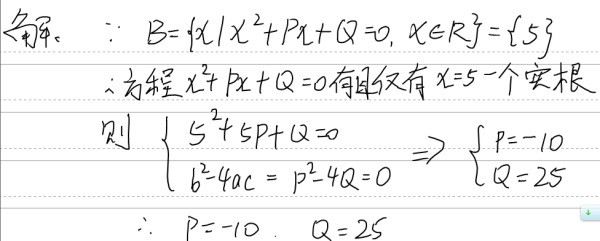 解: ∵ B={x|x²+Px+Q=0, x∈R}={5}
∴方程x²+Px+Q=0有且仅有x=5一个实根
则 { 5²+5P+Q=0 ⇒ { P=-10
b²-4ac=P²-4Q=0 Q=25
∴ P=-10. Q=25